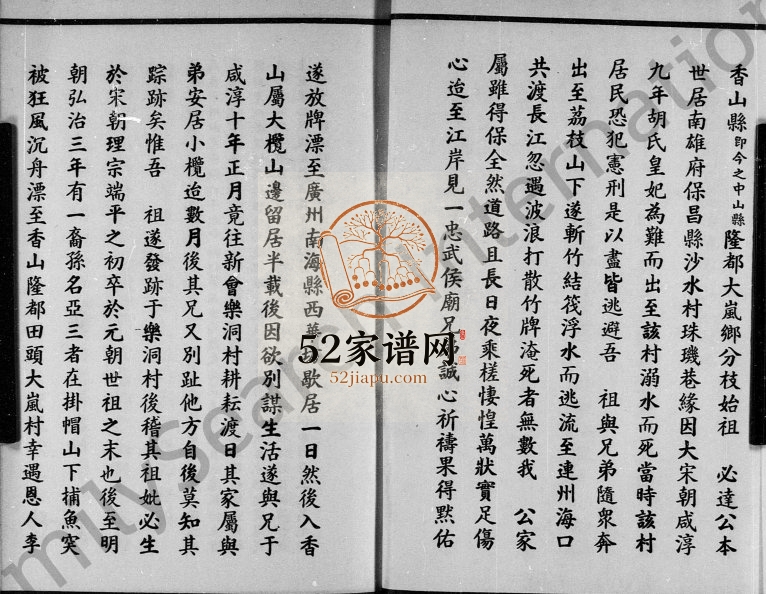 香山縣即今之中山縣隆都大嵐鄉分枝始祖 必達公本
世居南雄府保昌縣沙水村珠璣巷緣因大宋朝咸淳
九年胡氏皇妃為難而出至該村溺水而死當時該村
居民恐犯憲刑是以盡皆逃避吾 祖與兄弟隨衆奔
出至荔枝山下遂斬竹結筏浮水而逃流至連州海口
共渡長江忽遇波浪打散竹牌淹死者無數我 公家
屬雖得保全然道路且長日夜乘槎悽惶萬狀實足傷
心迨至江岸見一忠武侯廟兄 誠心祈禱果得黙佑
遂放牌漂至廣州南海縣西 歇居一日然後入香
山屬大欖山邊留居半載後因欲別謀生活遂與兄于
咸淳十年正月竟往新會樂洞村耕耘渡日其家屬與
弟安居小欖迨數月後其兄又別趾他方自後莫知其
踪跡矣惟吾 祖遂發跡于樂洞村後稽其祖妣必生
於宋朝理宗端平之初卒於元朝世祖之末也後至明
朝弘治三年有一裔孫名亞三者在掛帽山下捕魚突
被狂風沉舟漂至香山隆都田頭大嵐村幸遇恩人李
52家谱网
52jiapu.com